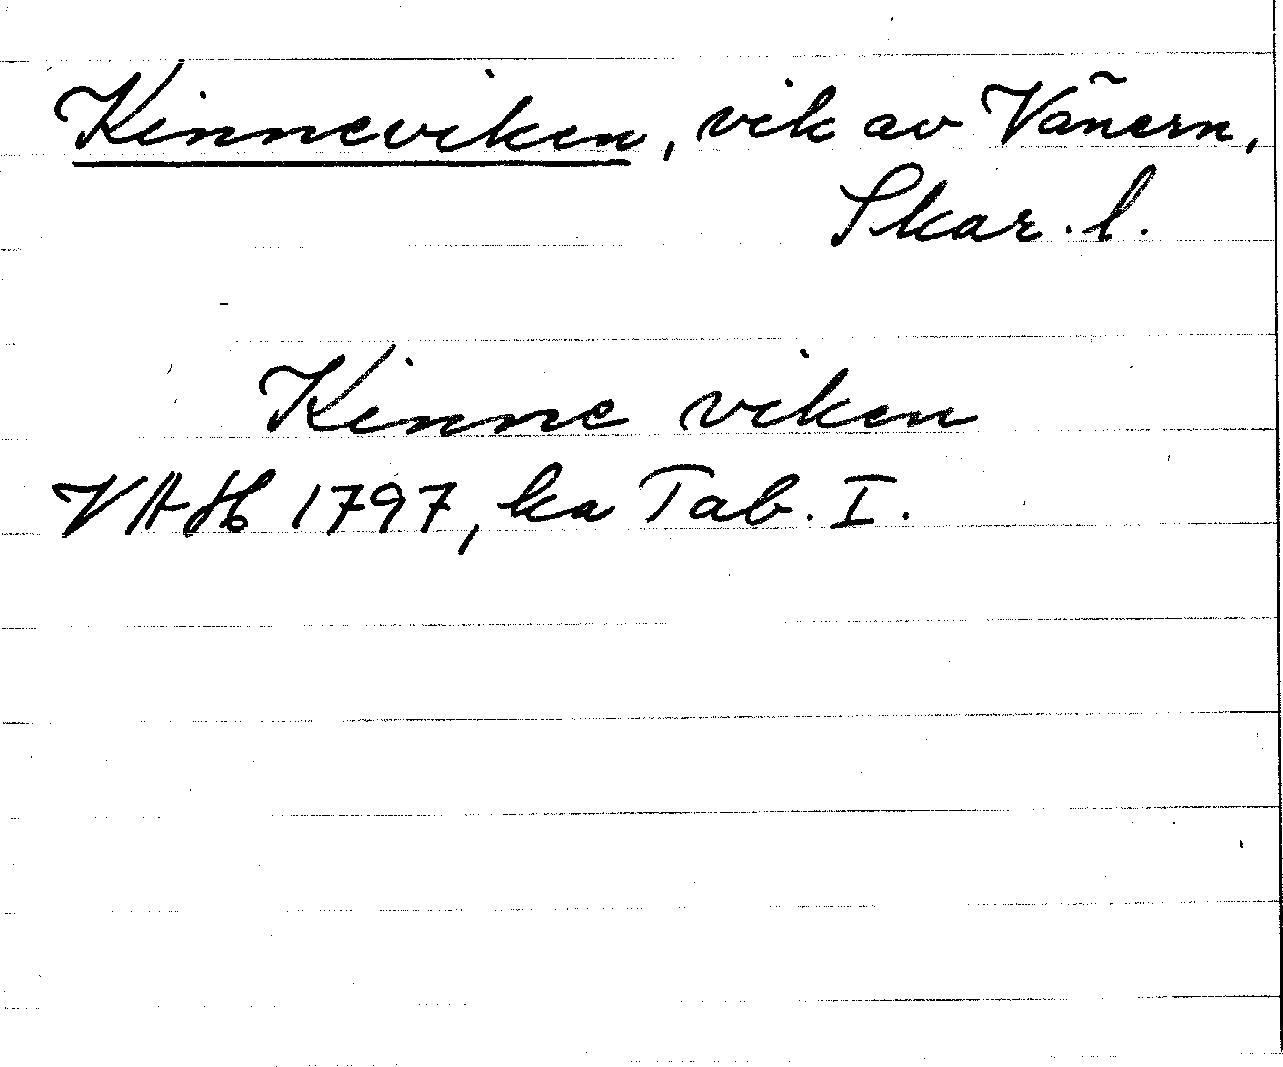 Kinneviken, vik av Vänern,
Skar. l.
Kinne viken
VAH 1797, ka Tab. I.